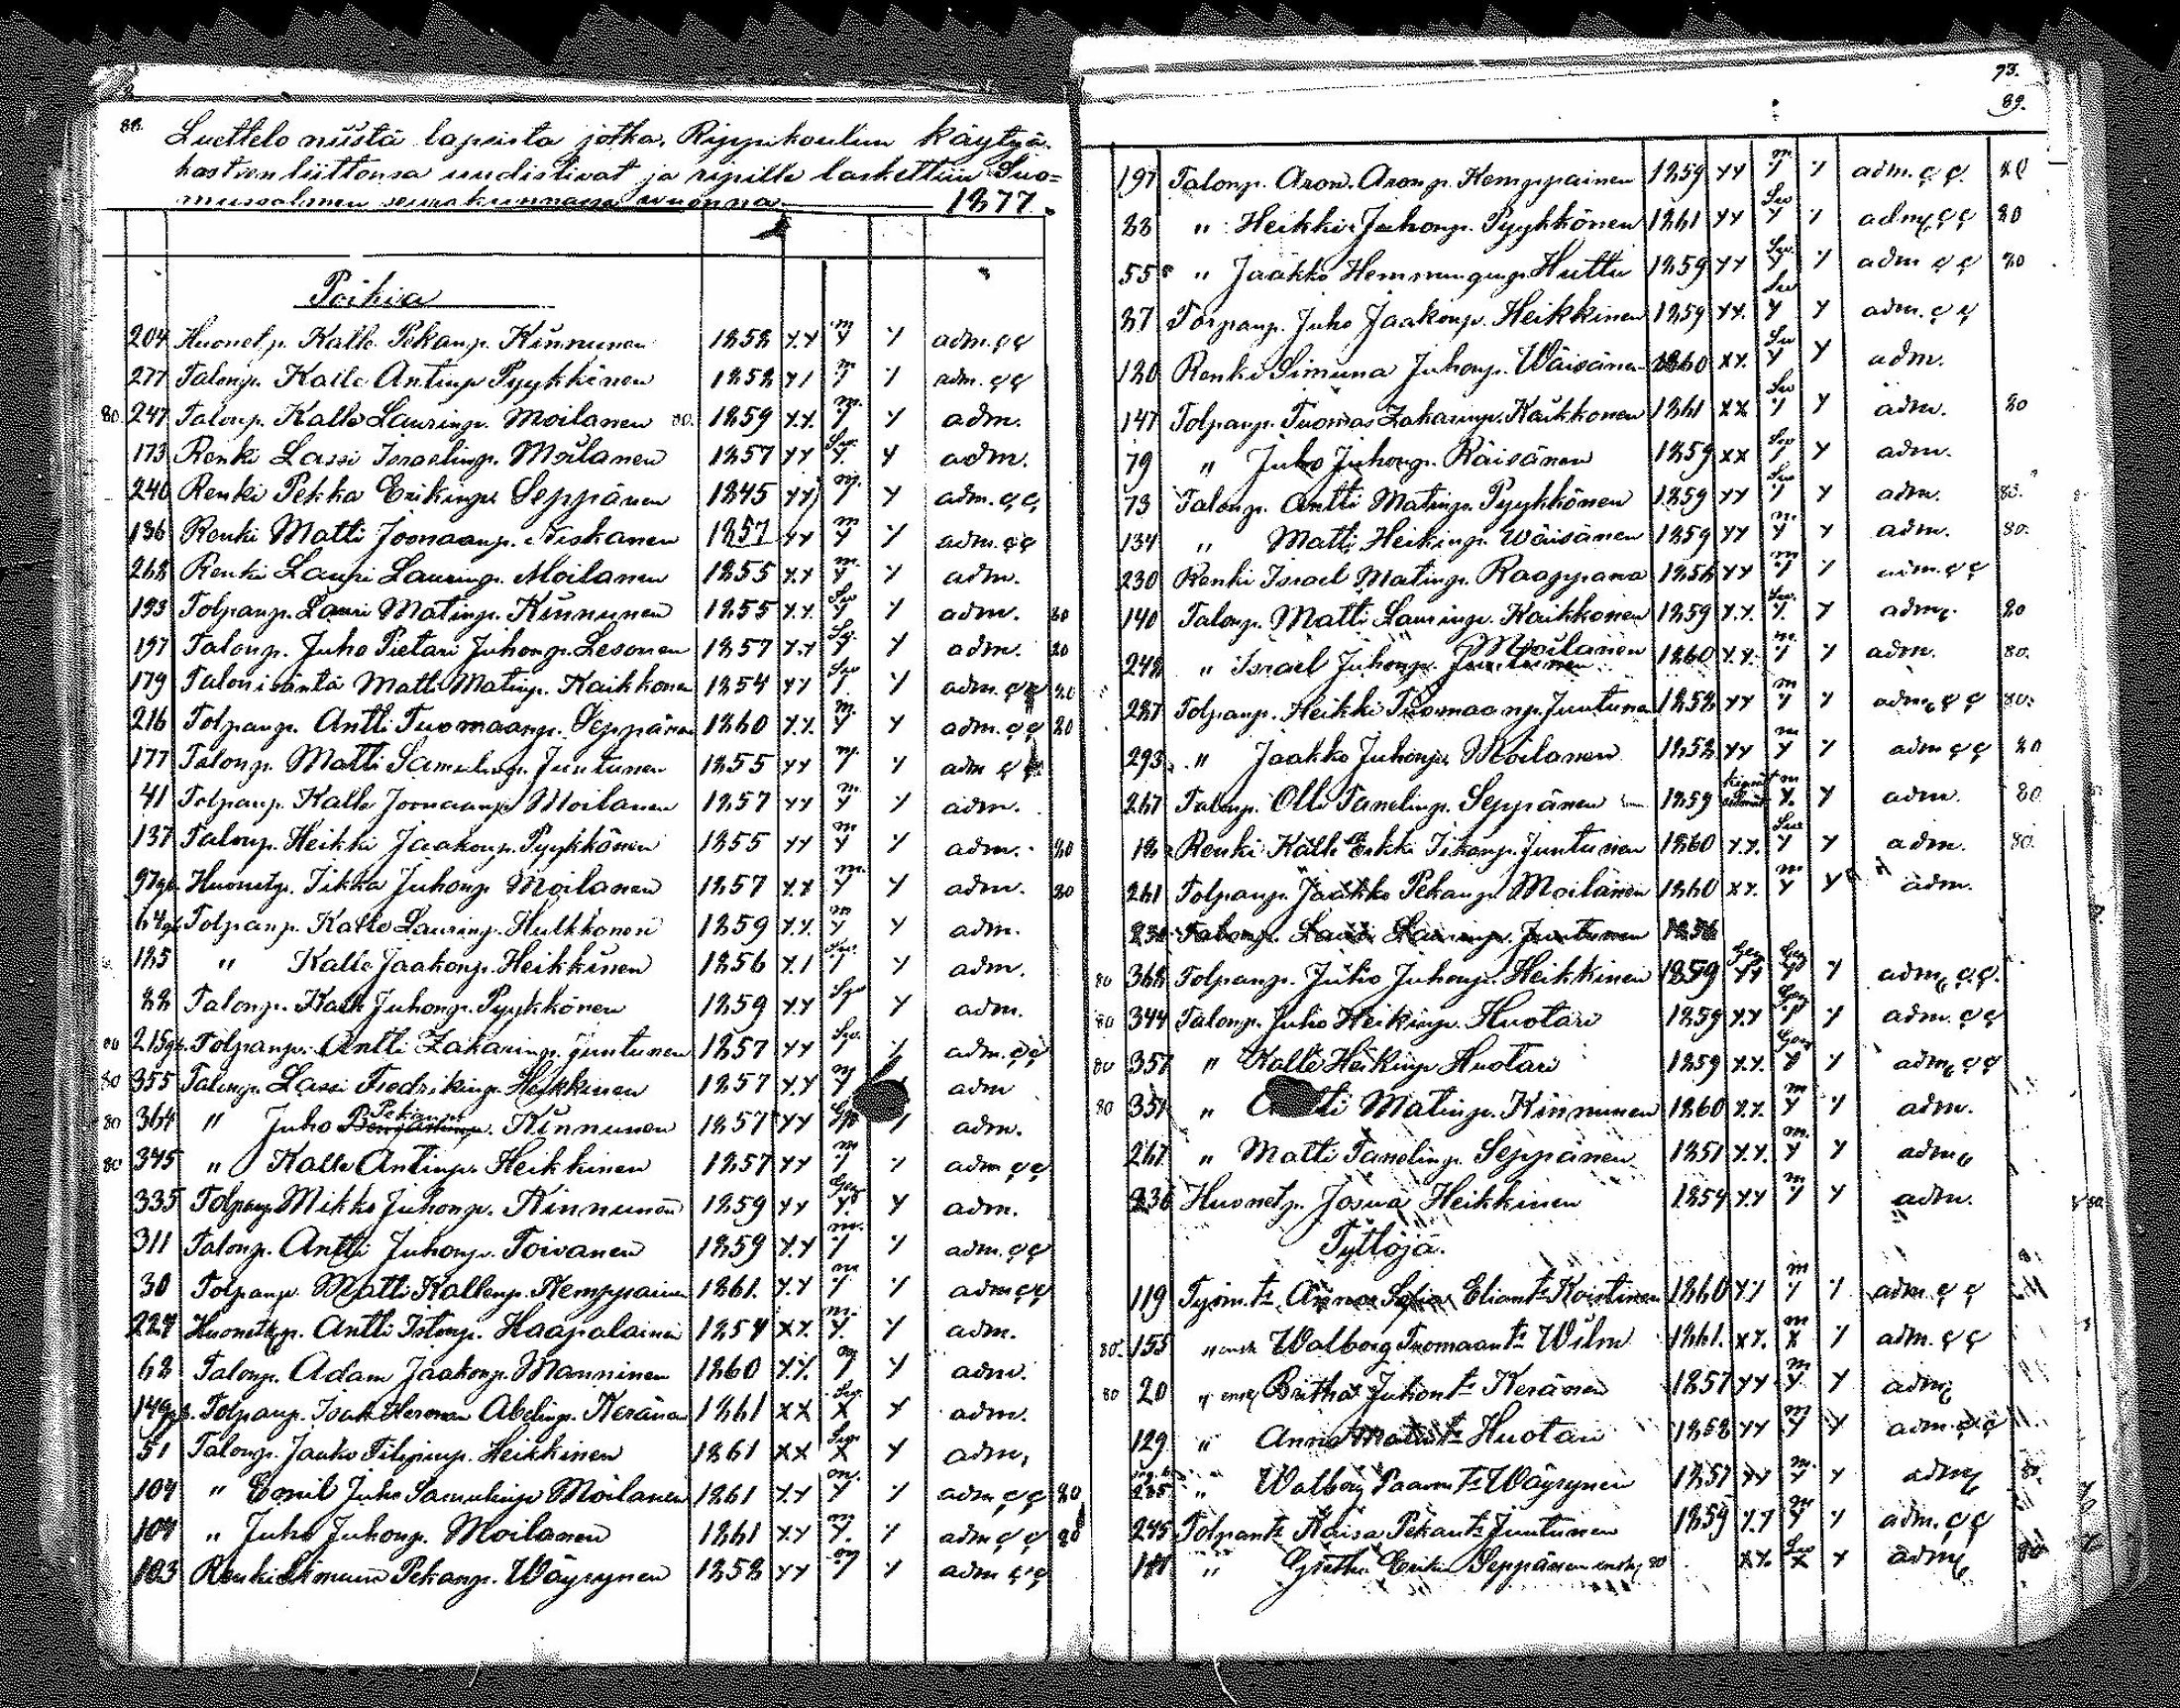 88.
Luettelo niistä lapsista jotka, Rippikoulun käytyä
kastienliittonsa uudistivat ja ripille laskettiin Suo=
mussalmen seurakunnassa vuonna 1877.
Poikia
204 Huonetp. Kalle Pekanp. Kinnunen 1858 m adm.
277 Talonp. Kalle Antinp. Pyykkönen 1858 m adm.
80. 247 Talonp. Kalle Laurinp. Moilanen 80. 1859 m. adm.
173 Renki Lassi Israelinp. Moilanen 1857 adm.
240 Renki Pekka Erikinp. Seppänen 1845 m. adm.
136 Renki Matti Joonaanp. Niskanen 1857 m adm.
268 Renki Lauri Laurinp. Moilanen 1855 m. adm.
193 Tolpanp. Lauri Matinp. Kinnunen 1855 adm. 80
197 Talonp. Juho Pietari Juhonp. Lesonen 1857 adm. 80
179 Talon isäntä Matti Matinp. Kaikkonen 1854 adm. 80
216 Tolpanp. Antti Tuomaanp. Seppänen 1860 m. adm. 80
177 Talonp. Matti Samulinp. Juntunen 1855 m. adm
41 Tolpanp. Kalle Joonaanp. Moilanen 1857 m. adm.
137 Talonp. Heikki Jaakonp. Pyykkönen 1855 m adm. 80
97 Huonetp. Iikka Juhonp. Moilanen 1857 m. adm. 80
64 Tolpanp. Kalle Laurinp. Hulkkonen 1859 m adm.
185 " Kalle Jaakonp. Heikkinen 1856 adm.
88 Talonp. Kalle Juhonp. Pyykkönen 1859 adm.
80 215 Tolpanp. Antti Zakarinp. Juntunen 1857 adm.
80 355 Talonp. Lassi Fredrikinp. Heikkinen 1857 m adm
80 364 " Juho Pekanp. Kinnunen 1857 adm.
80 345 " Kalle Antinp. Heikkinen 1857 m adm
335 Tolpanp. Mikko Juhonp. Kinnunen 1859 adm.
311 Talonp. Antti Juhonp. Toivanen 1859 m. adm.
30 Tolpanp. Matti Kallenp. Kemppainen 1861. m adm
224 Huonetp. Antti Haapalainen 1854 m. adm.
68 Talonp. Adam Jaakonp. Manninen 1860 m adm.
149 Tolpanp. Isak Herman Abelinp. Keränen 1861 adm.
51 Talonp. Jaako Filipinp. Heikkinen 1861 adm,
104 " Emil Juho Samulinp. Moilanen 1861 m. adm 80
104 " Juho Juhonp. Moilanen 1861 m adm 80
103 Renki Simuna Pekanp. Wäyrynen 1858 m adm
93.
89.
197 Talonp. Aron Aronp. Kemppainen 1859 m. adm. 80
88 " Heikki Juhonp. Pyykkönen 1861 adm 80
55 " Jaakko Hemminginp. Huttu 1859 adm 80
87 Tolpanp. Juho Jaakonp. Heikkinen 1859 adm.
120 Renki Simuna Juhonp. Wäisänen 1860 adm.
147 Tolpanp. Tuomas Zakarinp. Kaikkonen 1861 adm. 80
79 " Juho Juhonp. Räisänen 1859 adm.
73 Talonp. Antti Matinp. Pyykkönen 1859 adm. 80.
134 " Matti Heikinp. Wäisänen 1859 m. adm. 80.
230 Renki Israel Matinp. Raappana 1856 m adm.
140 Talonp. Matti Laurinp. Kaikkonen 1859 adm. 80
248 " Israel Juhonp. Moilanen 1860 m. adm. 80.
287 Tolpanp. Heikki Tuomaanp. Juntunen 1858 m adm 80.
293 " Jaakko Juhonp. Moilanen 1858 m adm 80
267 Talonp. Olli Tanelinp. Seppänen 1859 m adm. 80
18 Renki Kalle Erkki Iikanp. Juntunen 1860 adm. 80.
261 Tolpanp. Jaakko Pekanp. Moilanen 1860 m adm.
Talonp. Lassi Laurinp. Juntunen 1856
80 368 Tolpanp. Juho Juhonp. Heikkinen 1859 adm.
80 344 Talonp. Juho Heikinp. Huotari 1859 adm.
80 357 " Kalle Heikinp. Huotari 1859 adm
80 351 " Antti Matinp. Kinnunen 1860 m adm.
267 " Matti Tanelinp. Seppänen 1851 m. adm
236 Huonetp. Josua Heikkinen 1854 m adm.
Tyttöjä.
119 Työm. tr Anna Sofia Eliantr Koistinen 1860 m adm.
80. 155 " Walborg Tuomaantr Wilm 1861. m adm.
80 20 " Britha Juhontr Keränen 1857 m adm
129 " Anna Matintr Huotari 1858 m adm.
" Walborg Paavontr Wäyrynen 1857 m. adm 80.
245 Tolpantr Kaisa Pekantr Juntunen 1859 m adm.
181 " Greetha Erikin Seppänen 80 adm 80